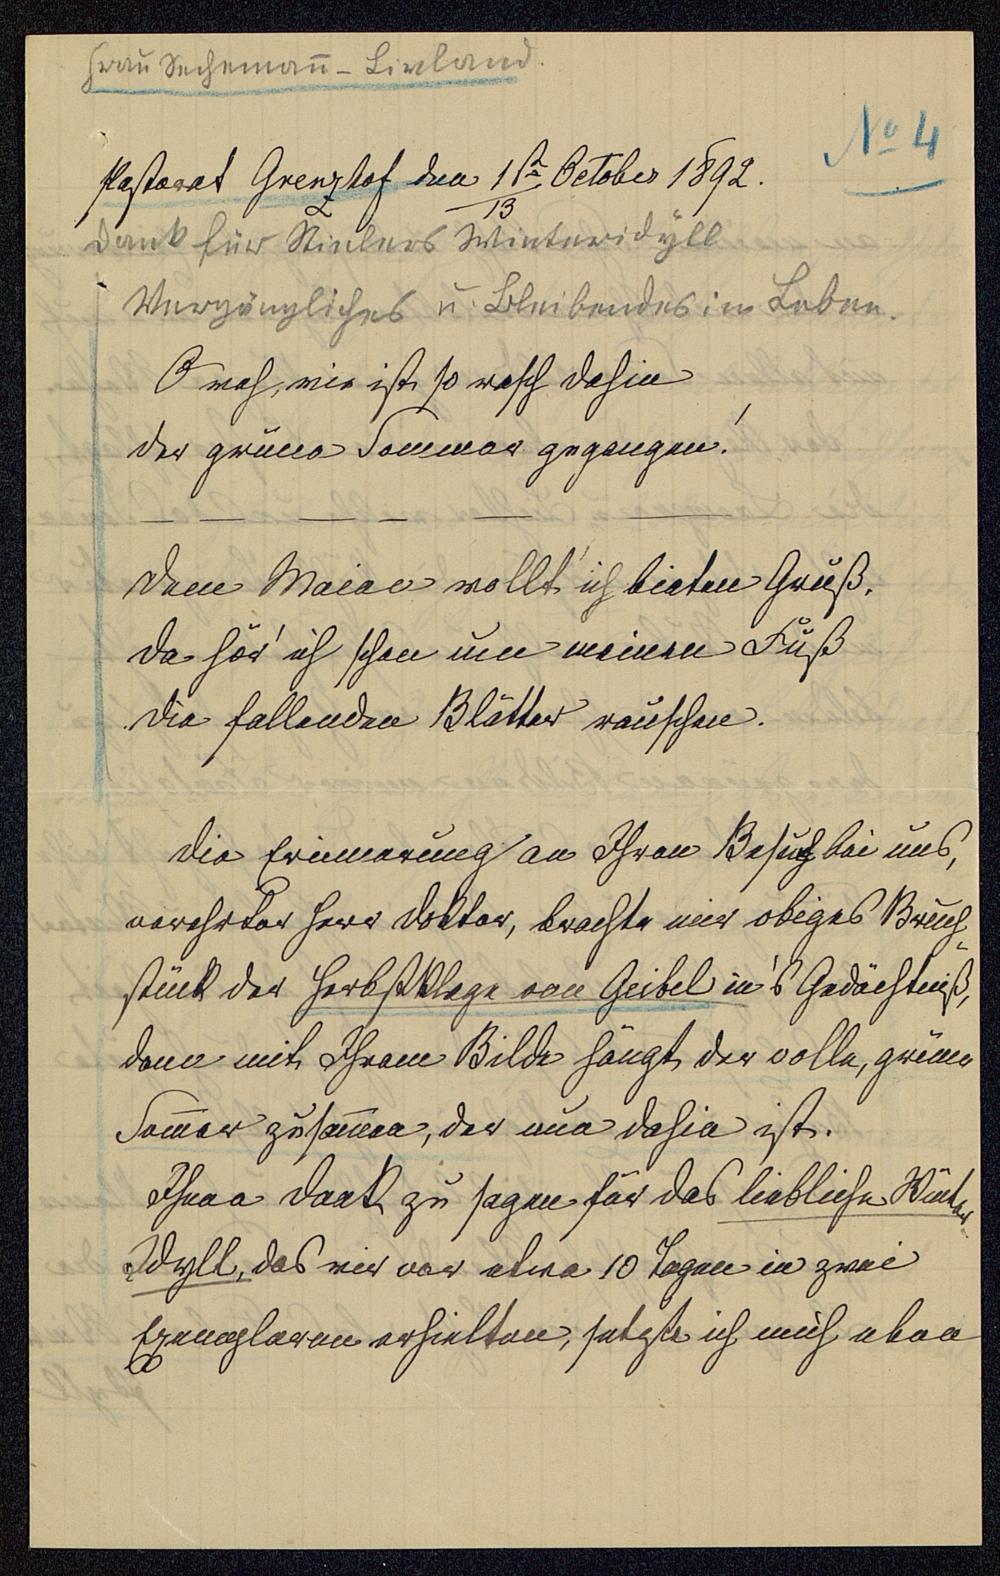 Frau Sechemann̄ - Livland.
No 4
Pastorat Grenzhof den 1ten October 1892.
13
Dank für Stielers Winteridyll
Vergängliches u. Bleibendes im Leben.
O weh, wie ist so rasch dahin
der grüne Sommer gegangen!
Dem Maien wollt' ich bieten Gruß.
Da hör' ich schon um meinen Fuß
Die fallenden Blätter rauschen.
Die Erinnerung an Ihren Besuch bei uns,
verehrter Herr Doktor, brachte mir obiges Bruch-
stück der Herbstklage von Geibel in's Gedächtniß,
denn mit Ihrem Bilde hängt der volle, grüne
Som̄er zusam̄en, der nun dahin ist.
Ihnen Dank zu sagen für das liebliche Winter
Idyll, das wir vor etwa 10 Tagen in zwei
Exemplaren erhielten, setzte ich mich eben